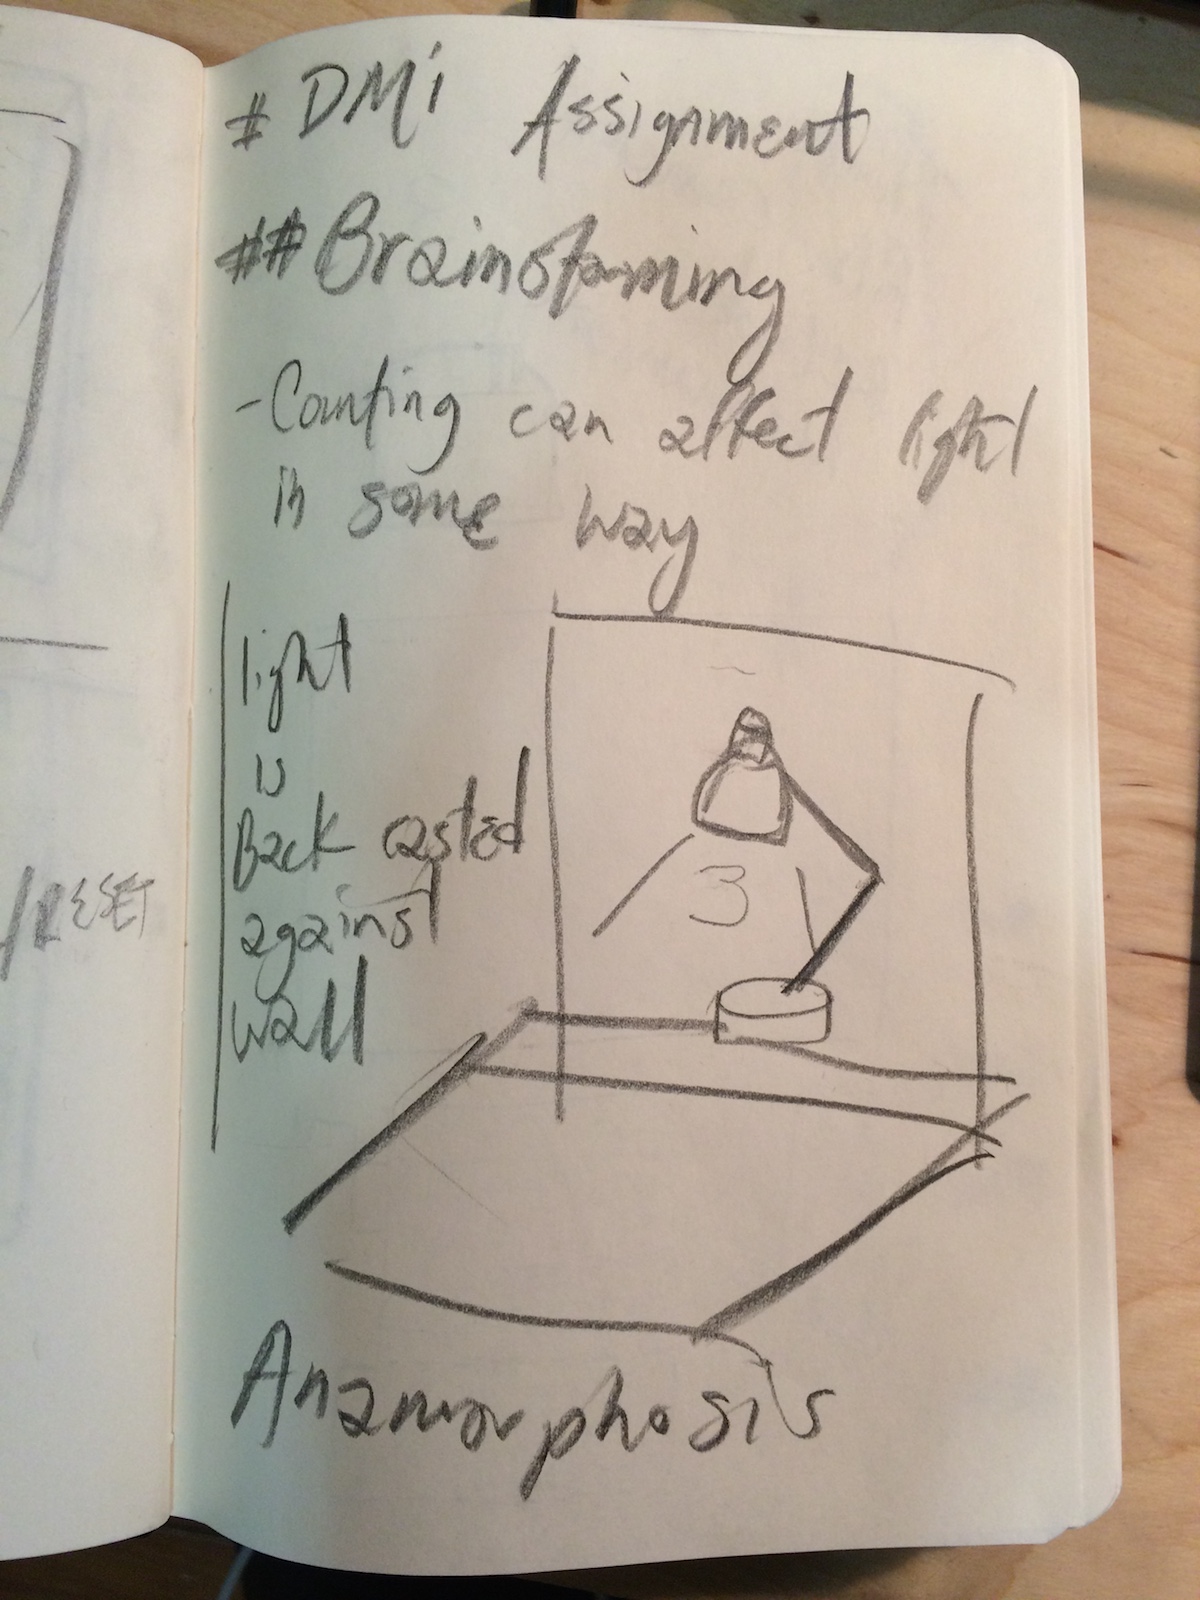 # DMi Assignment
## Brainstorming
- Counting can affect light
in some way
light
is
Back casted
against
wall
3
Anamorphosis
/RESET